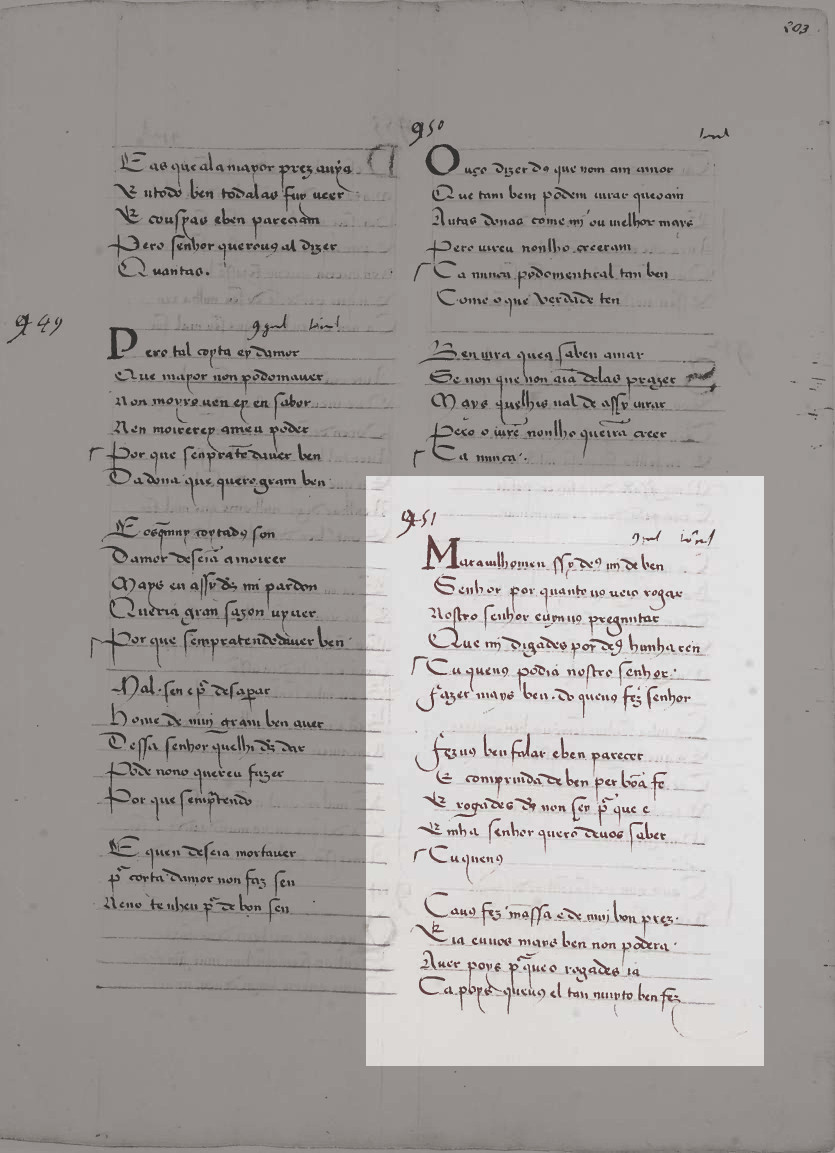 203
E as que ala mayor prez auya
E utodo ben todalas fuy ueer
E couSyas eben pareciam
Pero senhor querouꝯ al dizer
Quantas.
949
Pero tal coyta ey damor
Que mayor non podomauer
Non moyro uen ey en sabor
Nen moirerey ameu poder
Por que senprate͂dauer ben
Da dona que quero gram ben
damor deseia amoirer
Mays eu assy d͂s mi pardon
Queria gran sazon uyuer
Por que sempratendedauer ben
Mal. sen e p̃ desapar
home de muj gram ben auer
Dessa senhor quelhi d͂s dar
Pode nono quereu fazer
Por que semp̃tendo
E quen deseia mortauer
p̃ coita damor non faz sen
Neno tenheu p̃ de bon sen
950
Ouço dizer dꝯ que nom am amor
Que tam bem podem uirar queoam
Autas donas come mi ou melhor mays
Pero uireu nonlho creeram
Ca nunca podomentiral tan ben
Como o que verdade ten
Ben uira queꝯ saben amar
Se non que non aia delas prazer
Mays quelhis ual de assy uirar
Pero o uire͂ nonlho queira creer
Ca nunca.
951
Marauilhomen ssy deꝯ mj de ben
Senhor por quanto uꝯ ueio rogar
Nostro senhor euynuꝯ pregũtar
Que mj digades por deꝯ hunha ren
Cu quenꝯ podia nostro senhor.
fazer mays ben. do quenꝯ fez senhor
fezuꝯ ben falar eben parecer
E comprida de ben per boa fe
E rogades d͂s non sey p̃ que e
E mha senhor quero deuos saber
Cu quenꝯ
Cauꝯ fez massa e de muj bon prez.
E ia enuos mays ben non podera.
Auer poys p̃ queo rogades ia
Ca poys quenꝯ el tan muyto ben fez